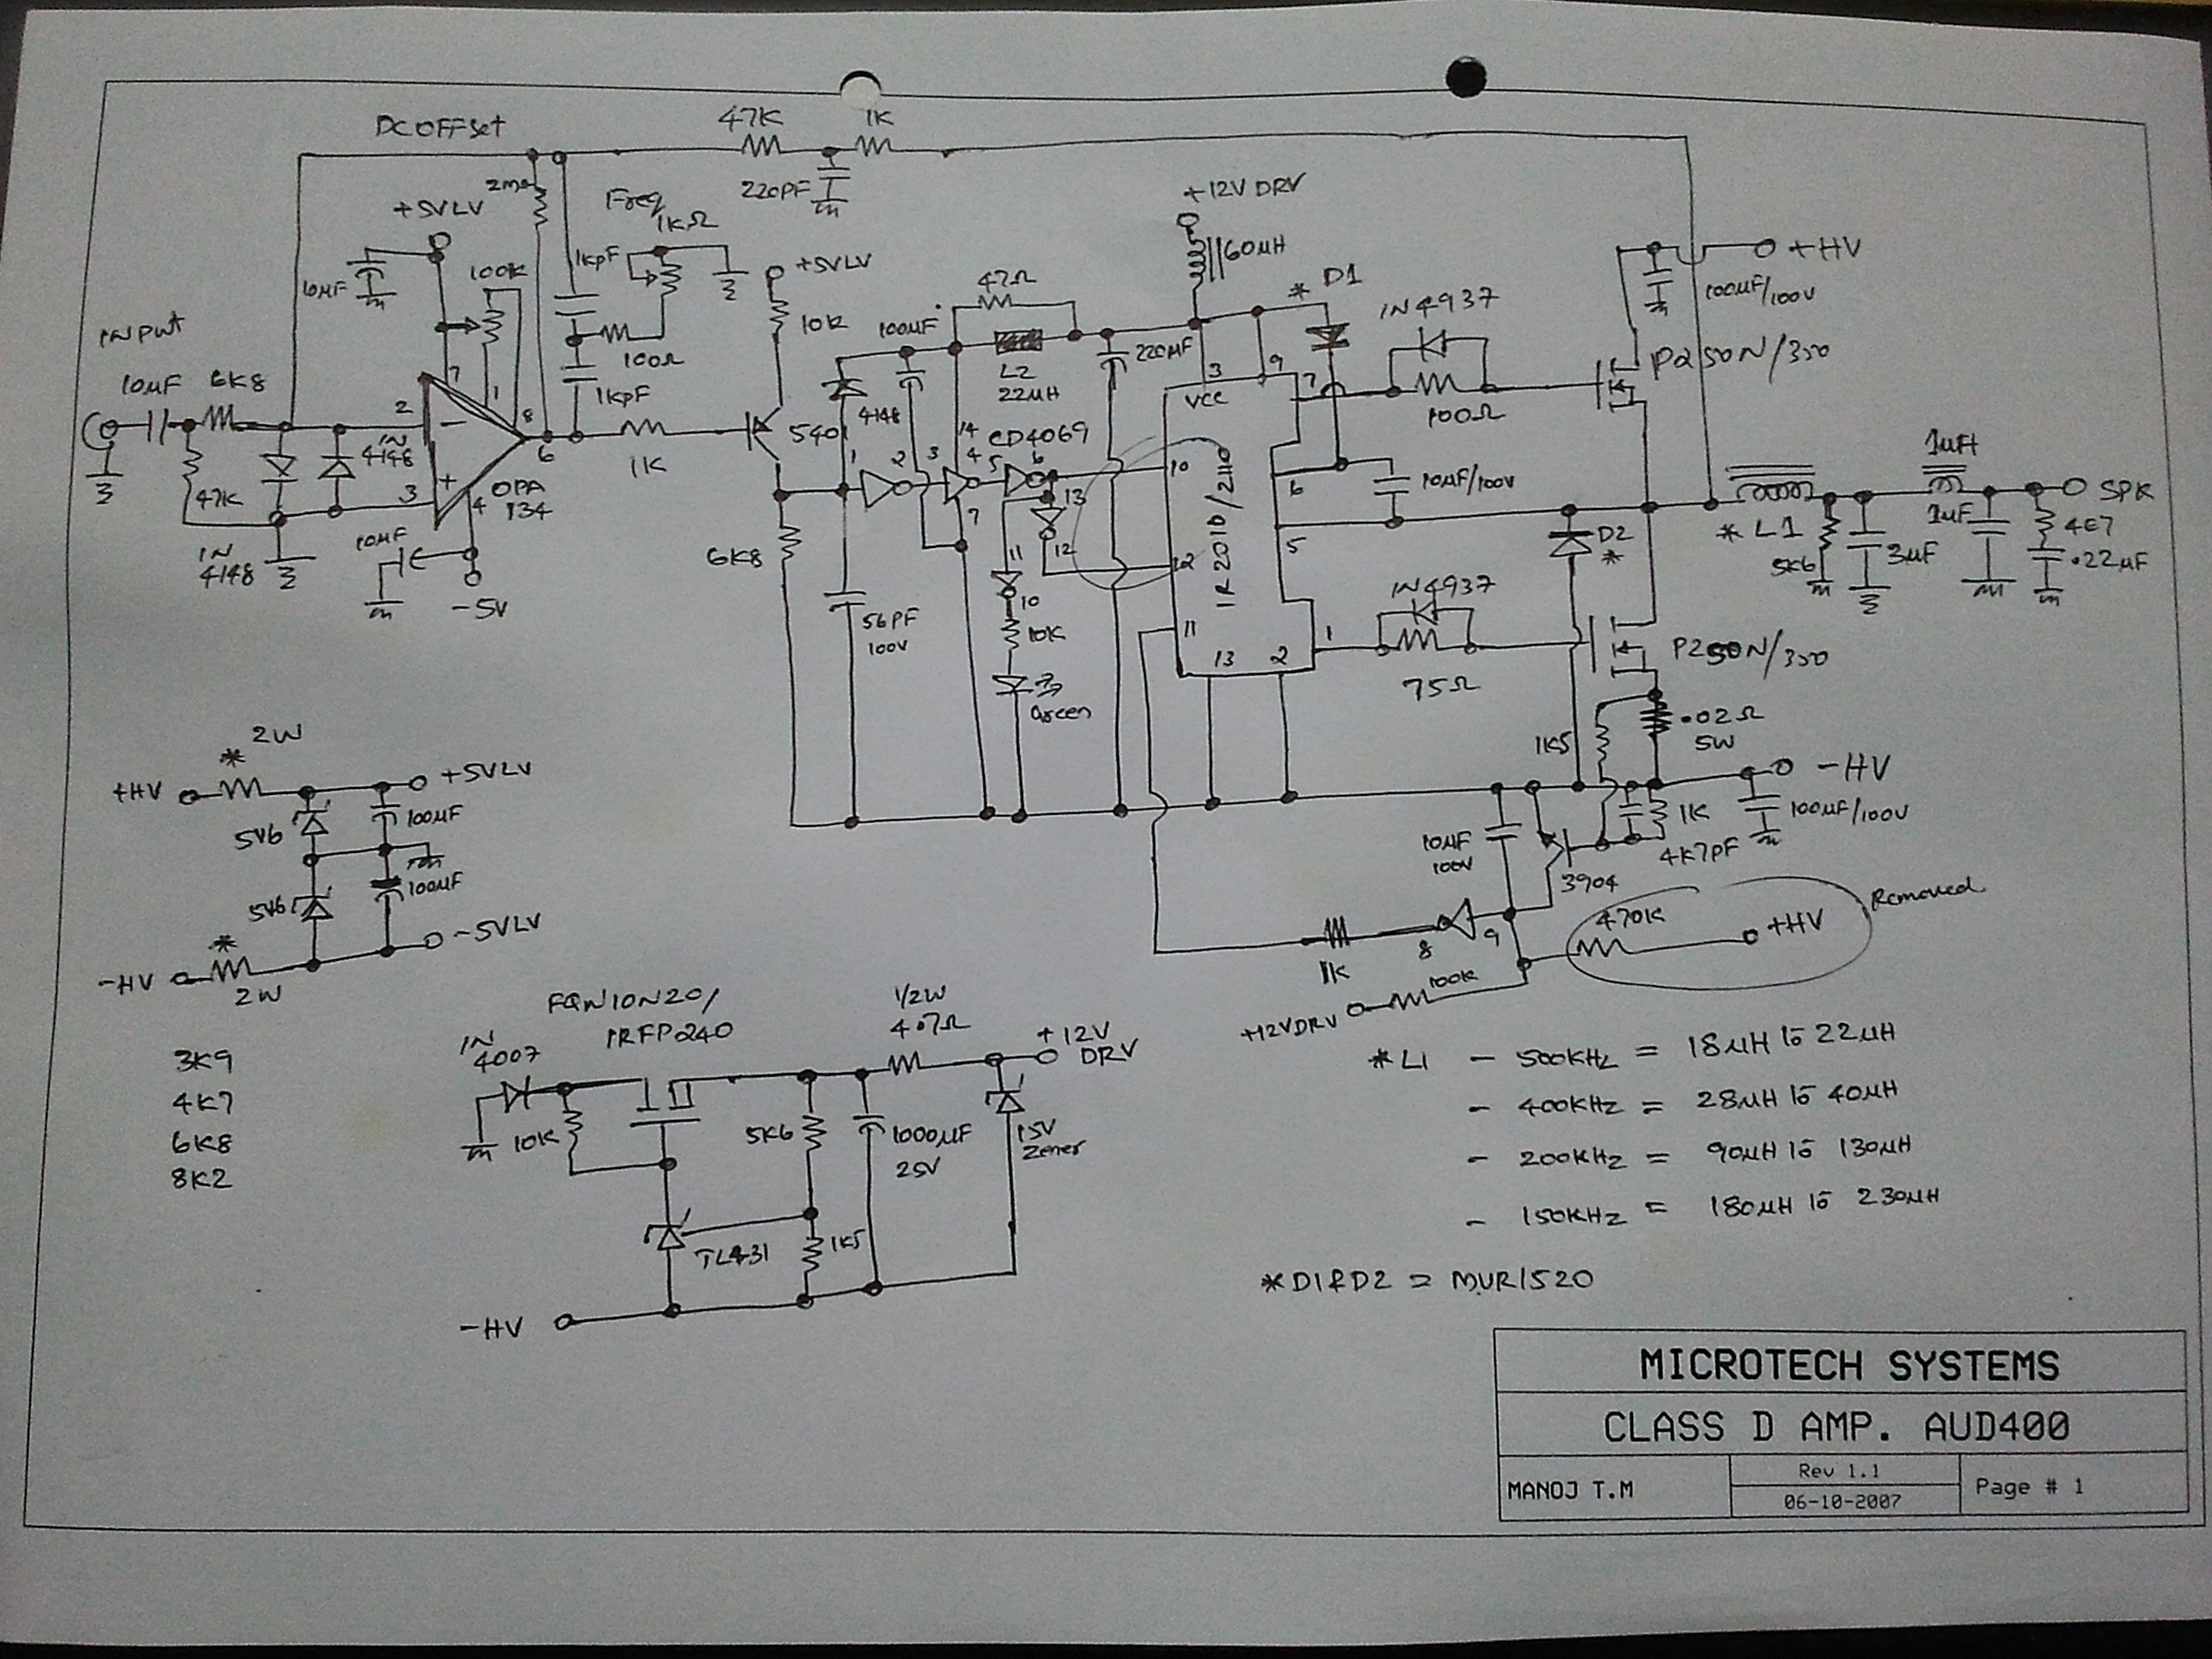 DC OFFSet
47K
1K
2M
220PF
Freq
1KΩ
+12V DRV
+5VLV
1KPF
100K
+5VLV
60µH
* D1
+HV
100µF/100V
INPUT
10µF
6K8
10K
100µF
47Ω
220µF
IN4937
100Ω
1KPF
L2
22µH
3
9
7
VCC
100Ω
P250N/350
2
7
1
8
6
IN
4148
47K
3
4
OPA
134
1K
5401
4148
14
CD4069
1
2
3
4
5
6
13
12
11
10
10
12
11
13
2
1
6
5
IR2010/2110
10µF/100V
1µH
SPK
* L1
5K6
3µF
1µF
4E7
.22µF
D2
*
IN
4148
10µF
-5V
6K8
56PF
100V
7
10K
Green
IN4937
75Ω
P250N/350
.02Ω
5W
1K5
-HV
2W
*
+HV
+5VLV
5V6
100µF
5V6
100µF
*
-5VLV
-HV
2W
10µF
100V
1K
4K7PF
100µF/100V
3904
Removed
470K
+HV
9
8
1K
100K
+12VDRV
FQN10N20/
IRFP240
IN
4007
1/2W
4.7Ω
+12V
DRV
10K
5K6
1000µF
25V
15V
Zener
TL431
1K5
-HV
3K9
4K7
6K8
8K2
*L1 - 500KHz = 18µH to 22µH
- 400KHz = 28µH to 40µH
- 200KHz = 90µH to 130µH
- 150KHz = 180µH to 230µH
*D1&D2 = MUR1520
MICROTECH SYSTEMS
CLASS D AMP. AUD400
MANOJ T.M
Rev 1.1
06-10-2007
Page # 1